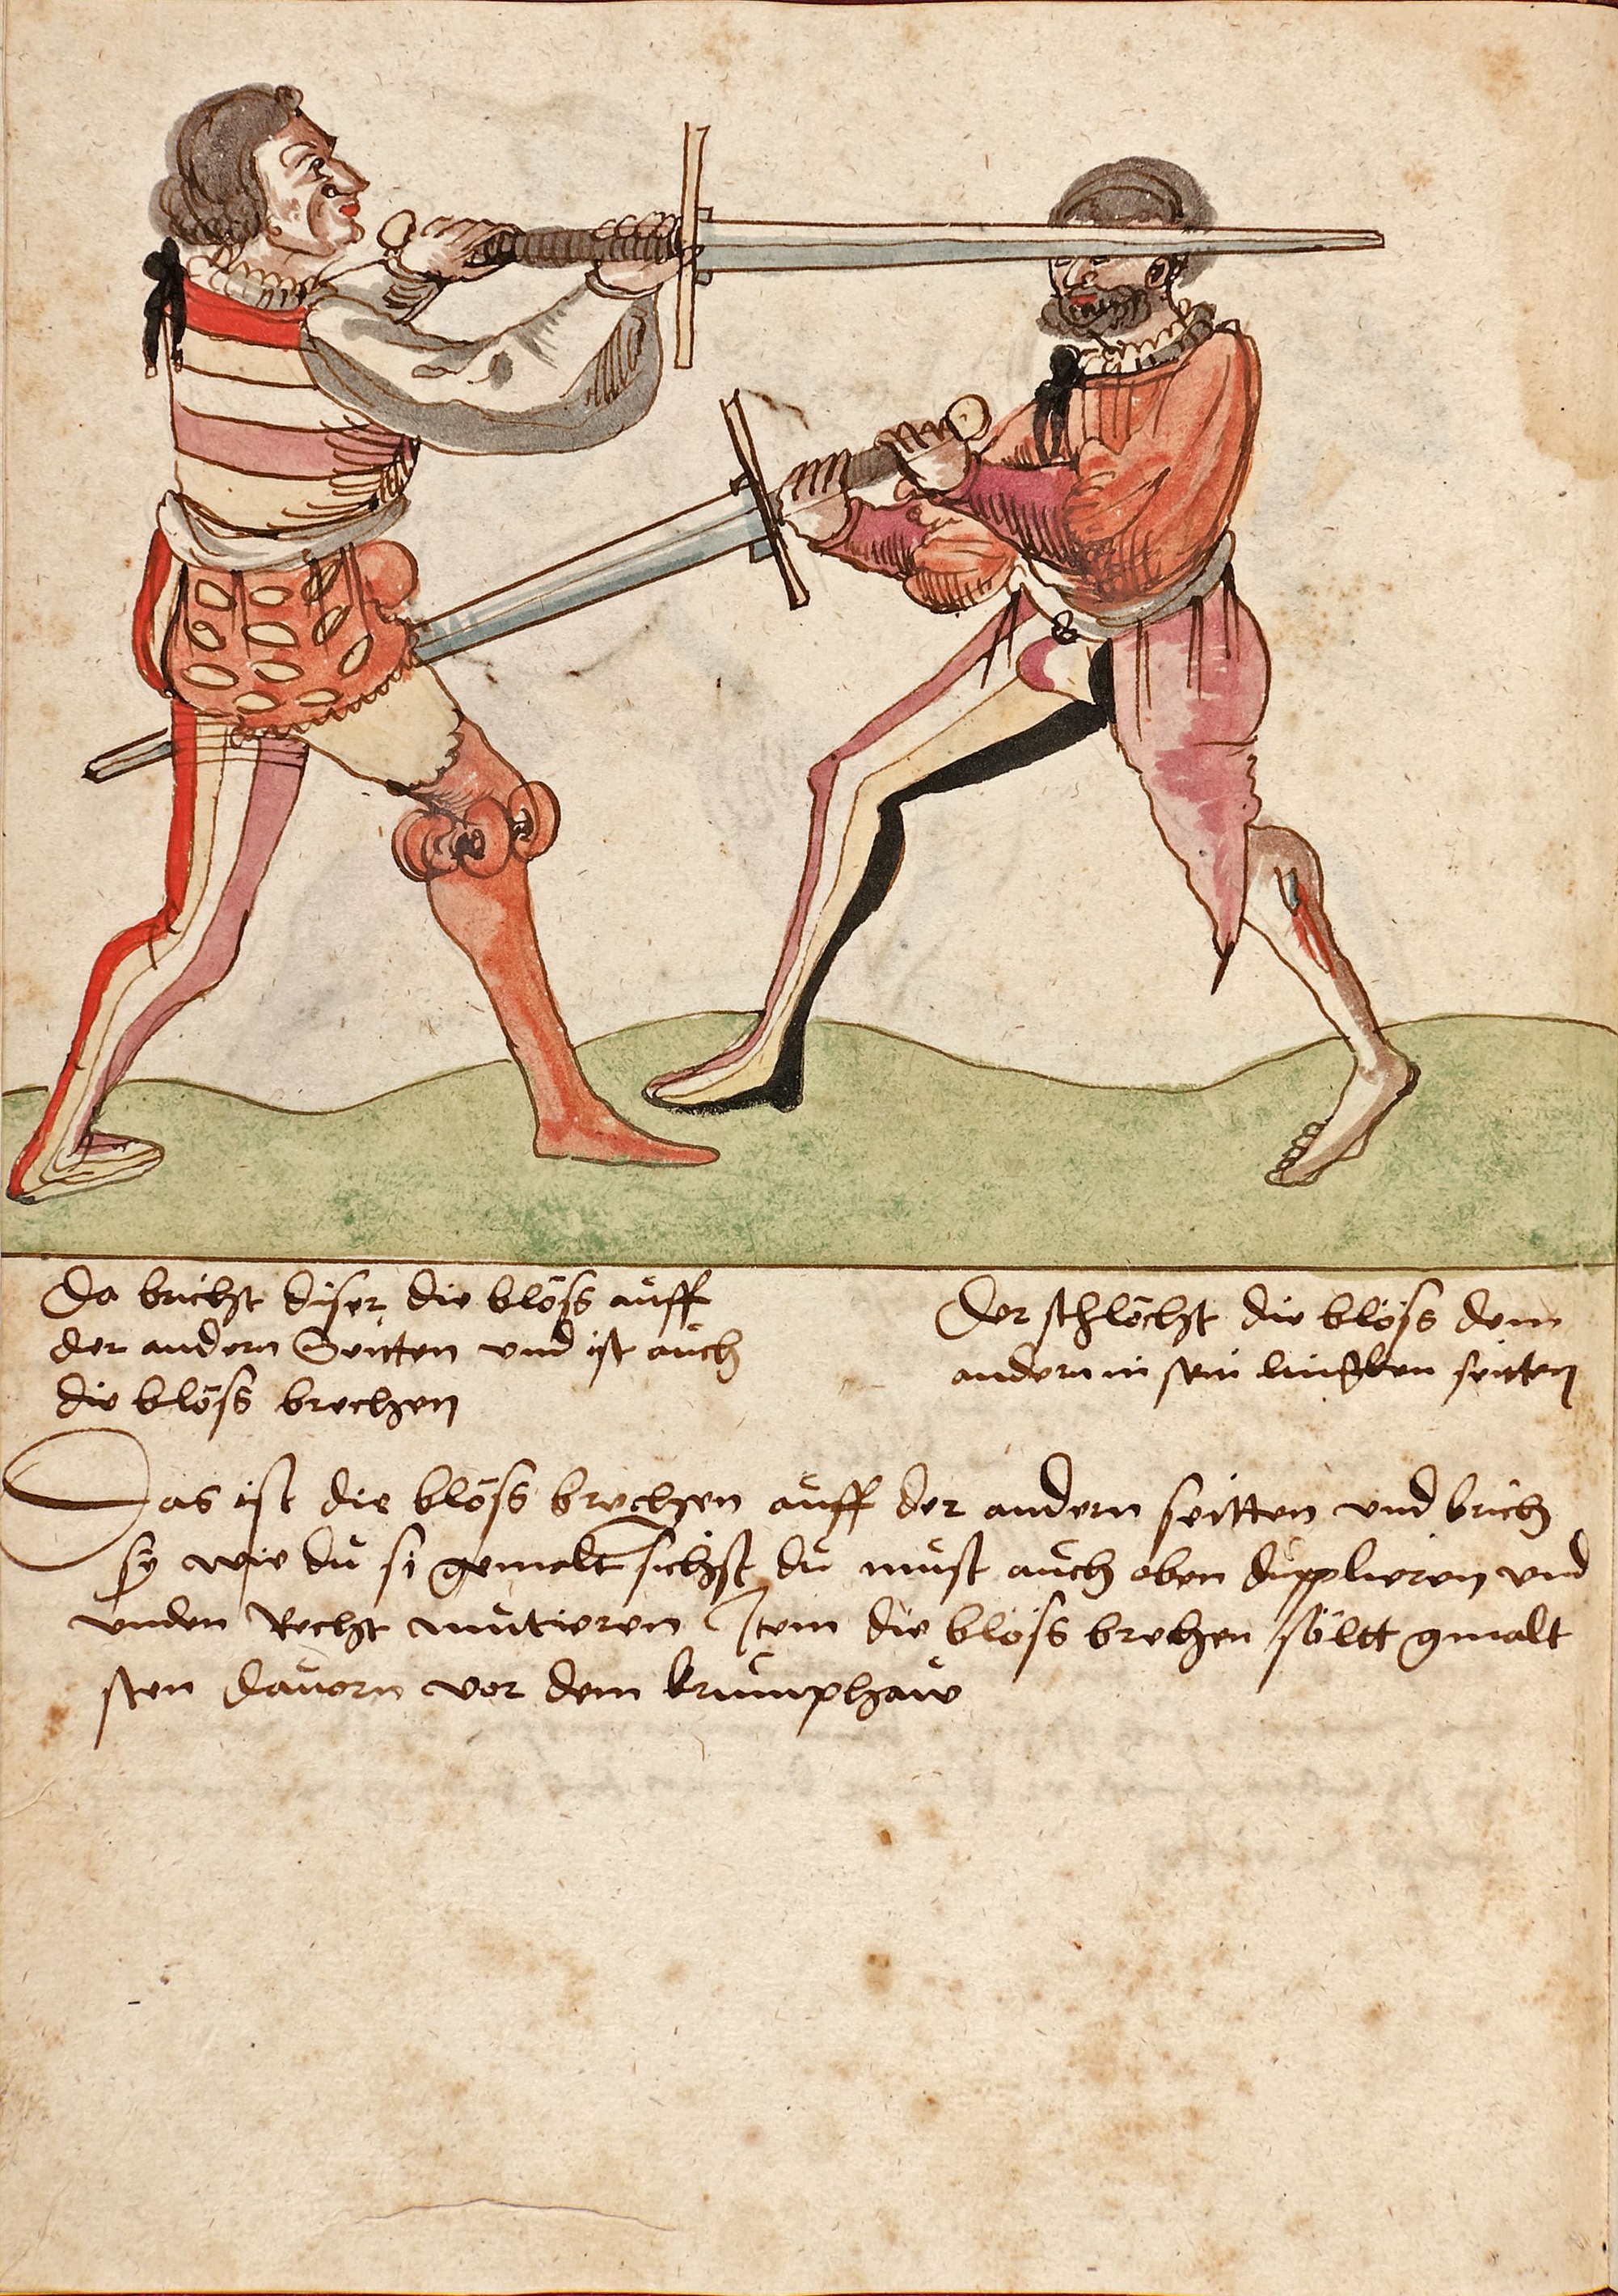 Da bricht diser die blöss auff
der andern Seitten und ist auch
die blöss brechen
Der schlöcht die blöss dem
andern in sein linʒken seitten
Das ist die blöss brechen auff der andern seitten und brich
sÿ wie du si gemalt sichst du must auch oben dupplieren und
unden Recht mutieren Item die blöss brehen söltt gmalt
sten davorn vor dem krumphaw